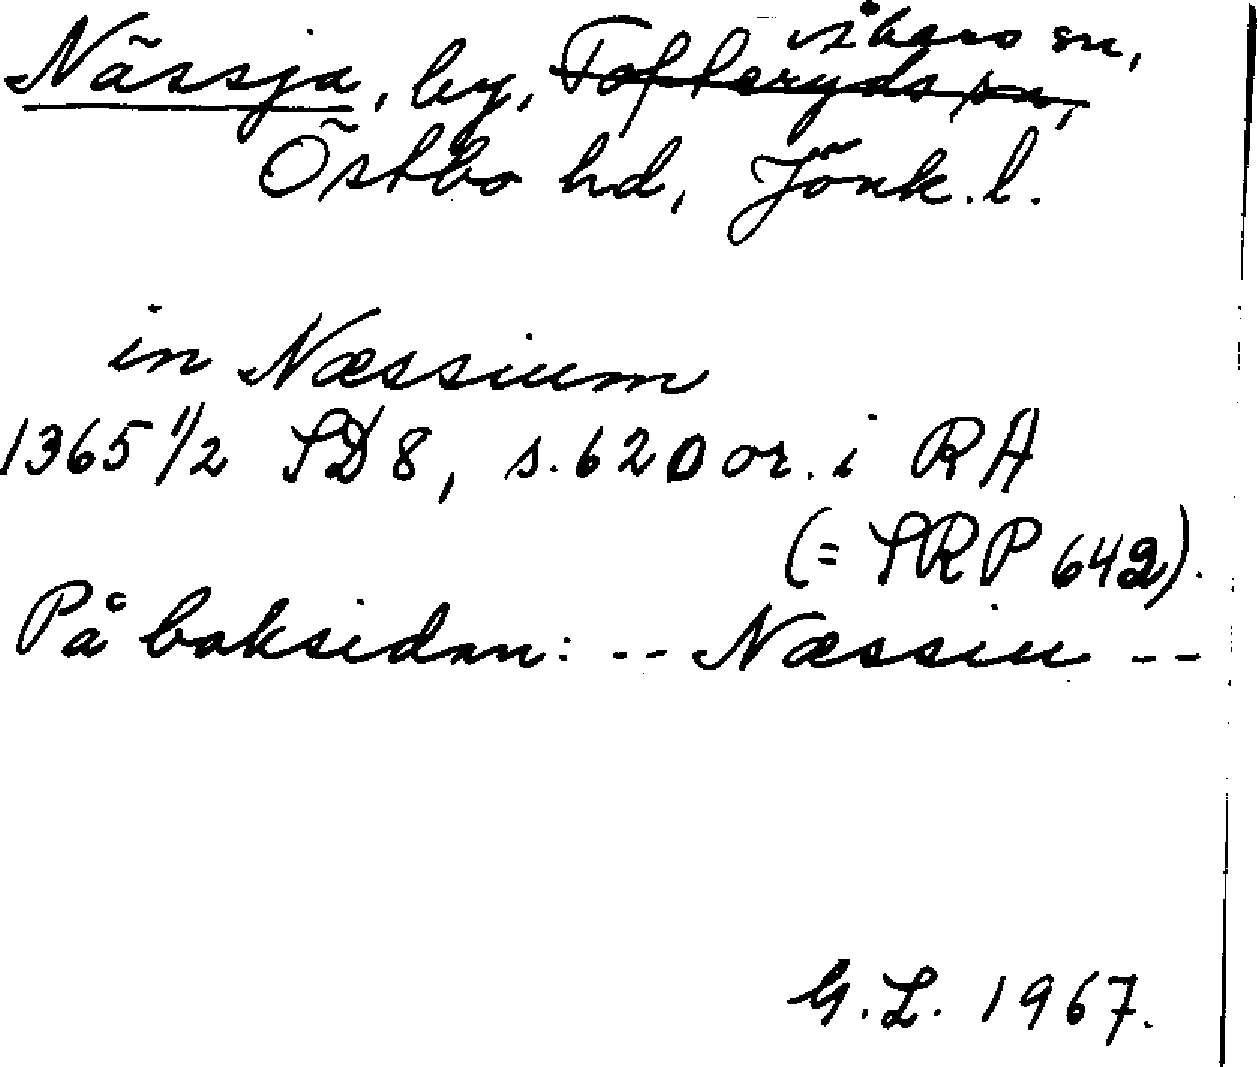 Nässja, by, Tofteryds sn, Åkers sn,
Östbo hd, Jönk. l.
in Næssium
1365 1/2 SD 8, s. 620 or. i RA
(= SRP 642).
På baksidan: -- Næssiu --
G. L. 1967.